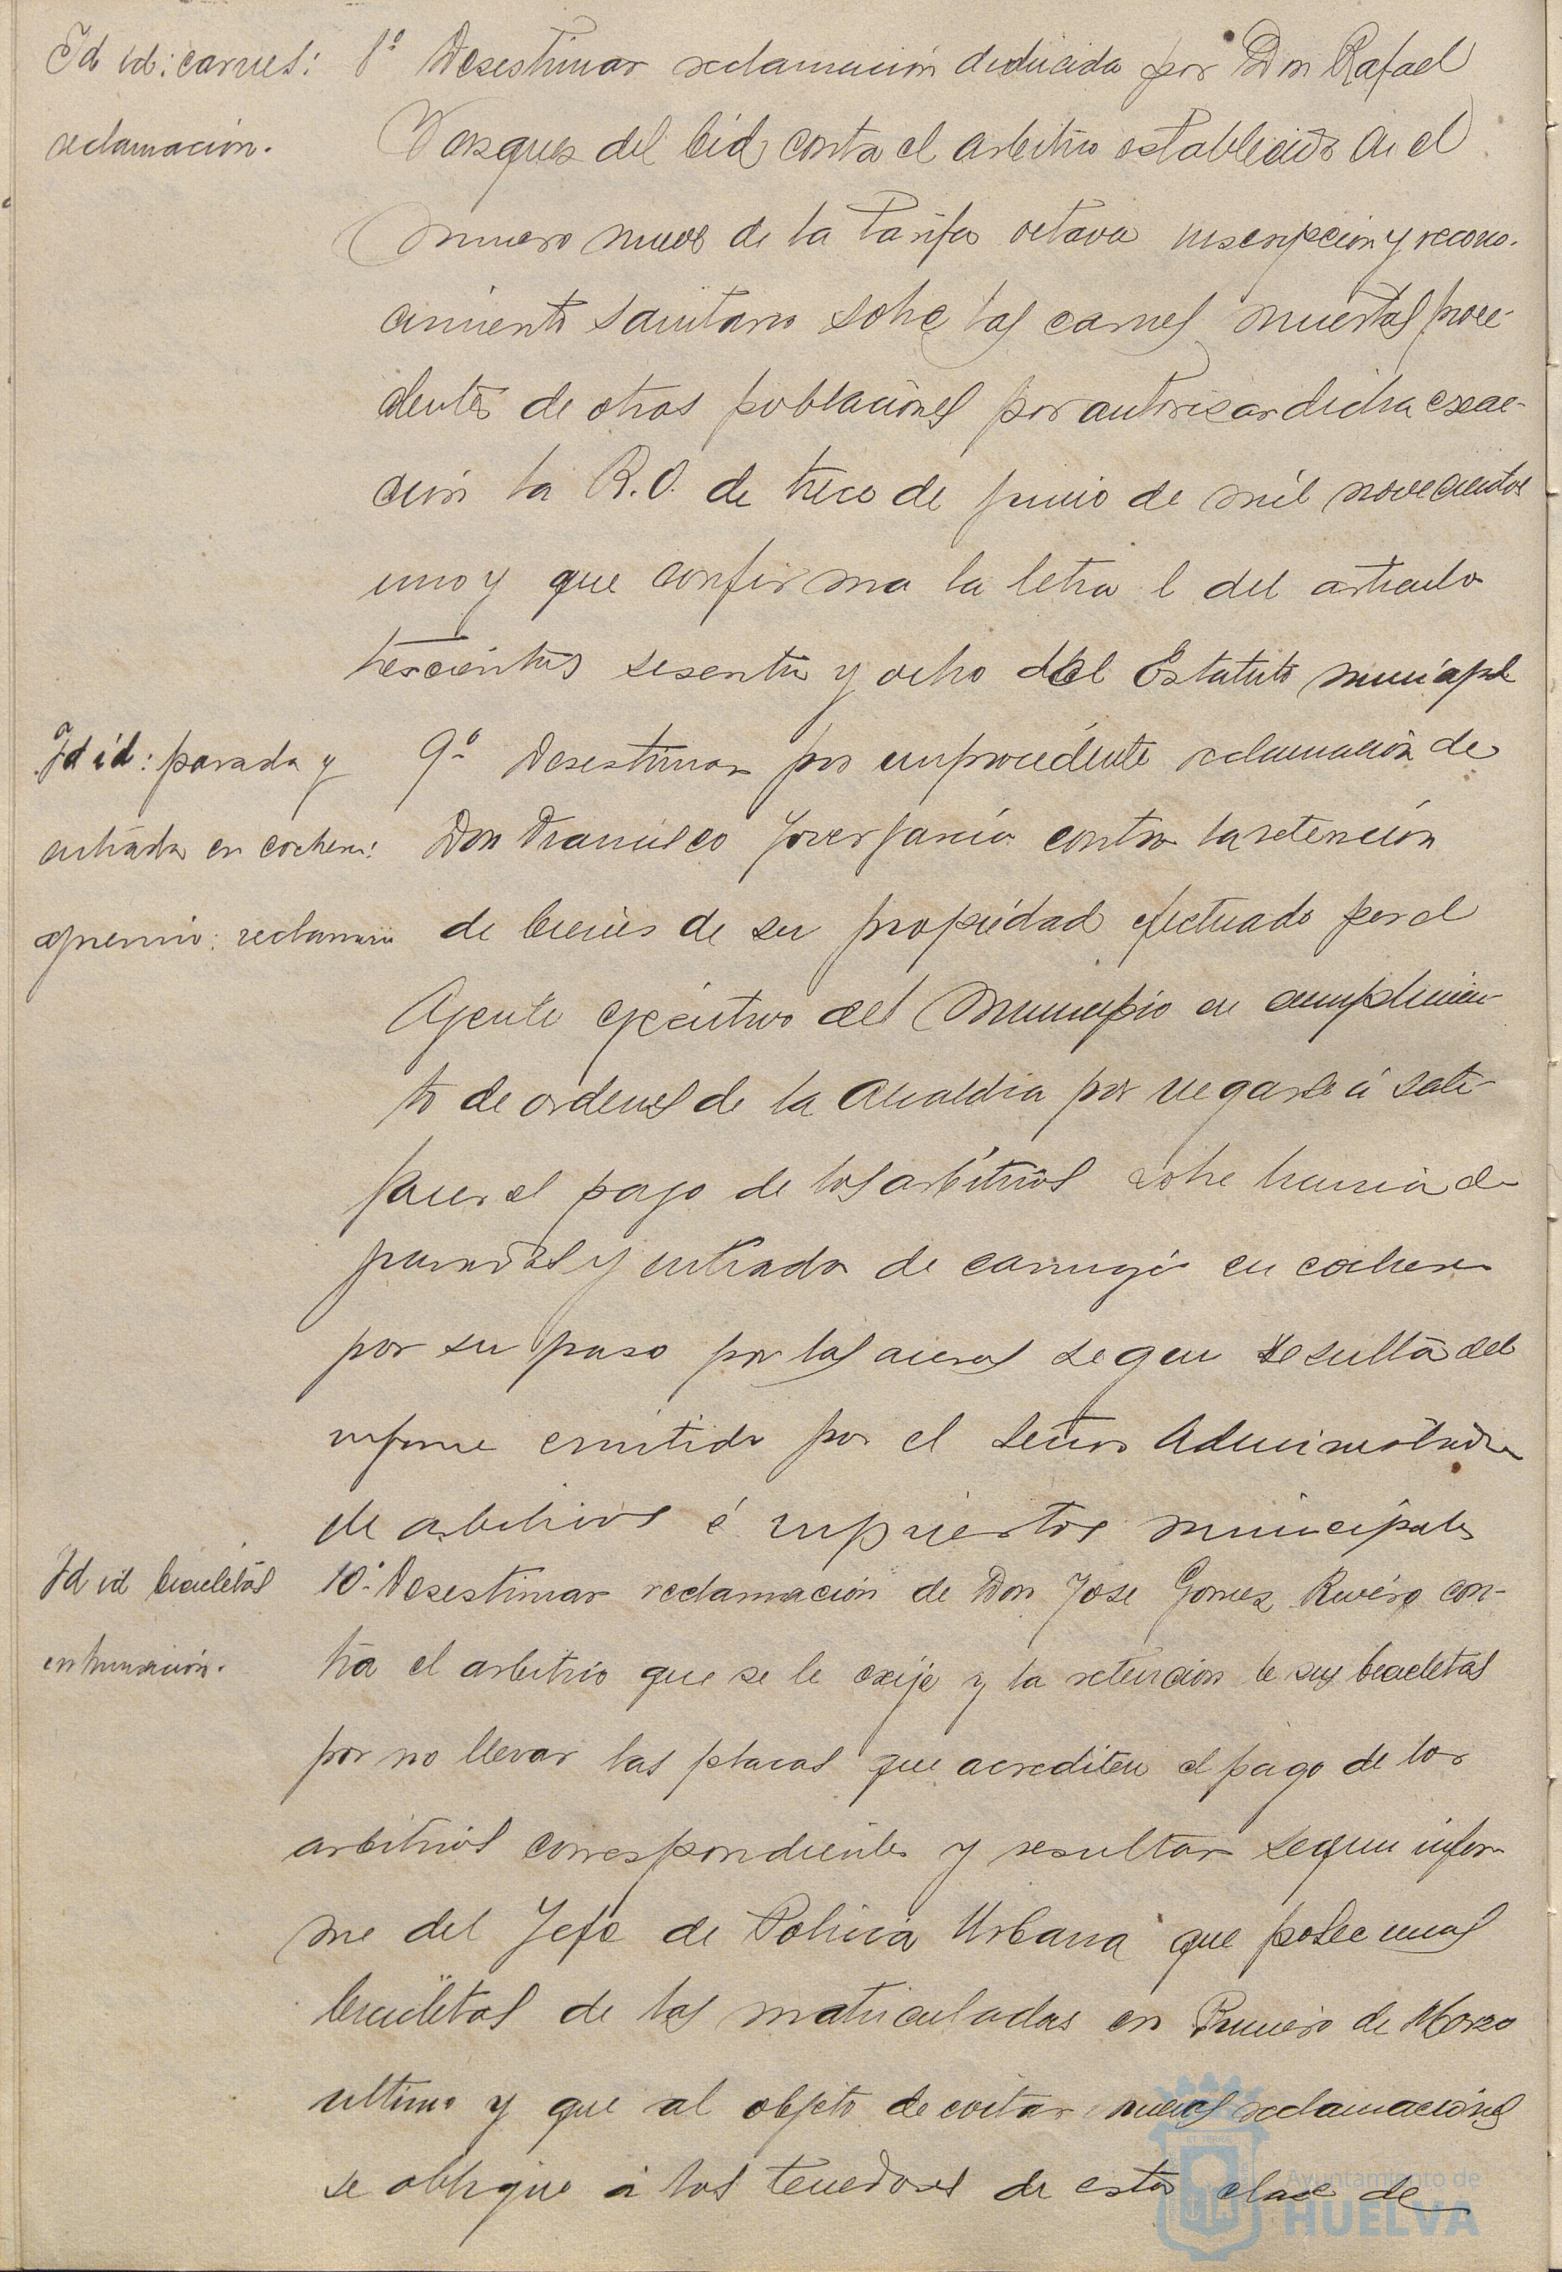 Id id: carnes:
reclamación.
8º Desestimar reclamación deducida por Don Rafael
Vazquez del Cid contra el arbitrio establecido en el
numero nueve de la Tarifa octava inscripcion y recono-
cimiento sanitario sobre las carnes muertas proce-
dentes de otras poblaciones por autorizar dicha exac-
cion la R.O. de trece de junio de mil novecientos
uno y que confirma la letra l del articulo
trescientos sesenta y ocho del Estatuto municipal
Id id: parada y
entrada en cochera:
apremio: reclamacion
9º Desestimar por improcedente reclamación de
Don Francisco Jover García contra la retención
de bienes de su propiedad efectuado por el
Agente ejecutivo del Municipio en cumplimien-
to de ordenes de la Alcaldia por negarse á satis-
facer el pago de los arbitrios sobre licencia de
paradas y entrada de carruajes en cocheras
por su paso por las aceras segun resulta del
informe emitido por el señor Administrador
de arbitrios é impuestos municipales
Id id bicicletas
reclamación.
10º Desestimar reclamación de Don Jose Gomez Rivero con-
tra el arbitrio que se le exije y la retencion de sus bicicletas
por no llevar las placas que acrediten el pago de los
arbitrios correspondientes y resultar segun infor-
me del Jefe de Policia Urbana que posee unas
bicicletas de las matriculadas en Primero de Marzo
ultimo y que al objeto de evitar nuevas reclamaciones
se obligue á los tenedores de esta clase de
Ayuntamiento de
HUELVA